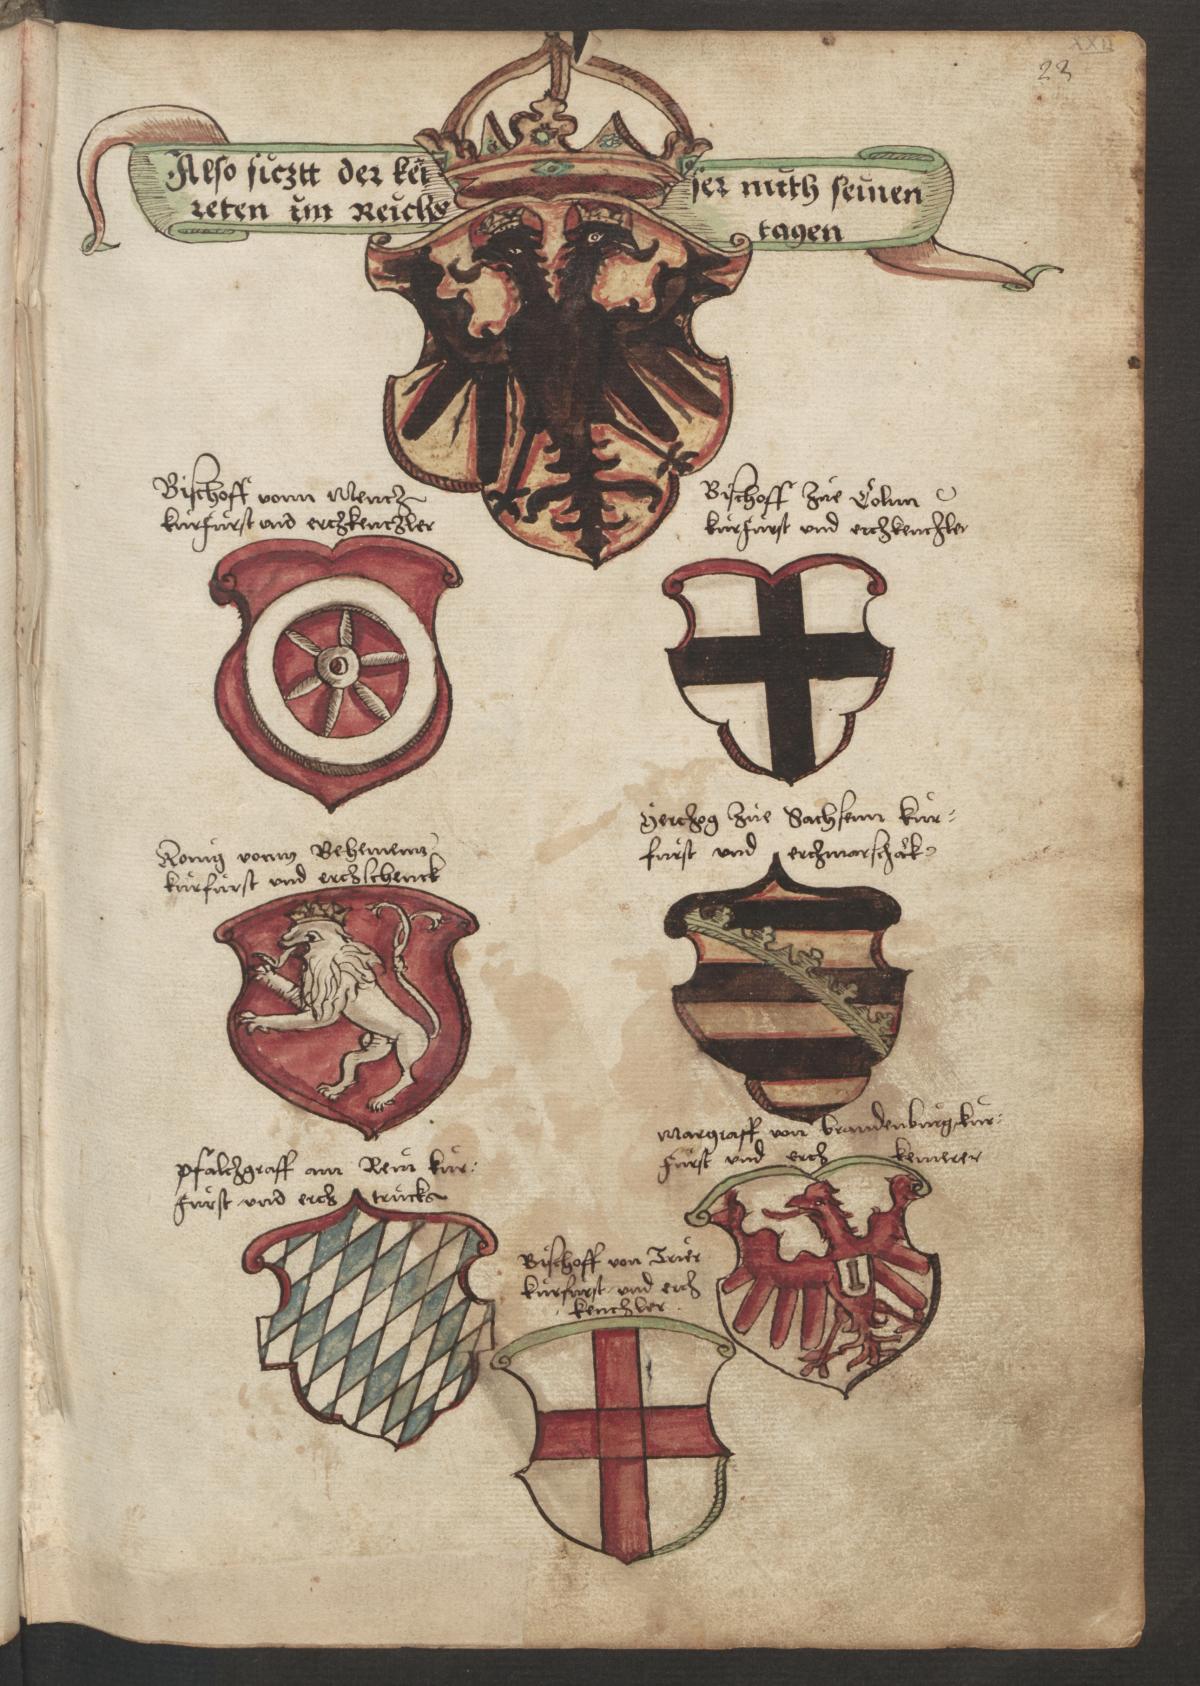 XXII
23
Also sicztt der kei ser mith seinen
reten im Reichs tagen
Bischoff vonn Mencz
kurfurst vnd erczkenczler
Bischoff zue Coln
kurfurst vnd erczkenczler
Konig vonn Behemenn
kurfurst vnd erczschenck
Herczog zue Sachsenn kur-
furst vnd erczmarschalk
pfalczgraff am Rein kur-
furst vnd ercz trucks
Margraff von brandenburg kur-
furst vnd ercz kemerer
Bischoff von Trier
kurfurst vnd ercz
kenczler